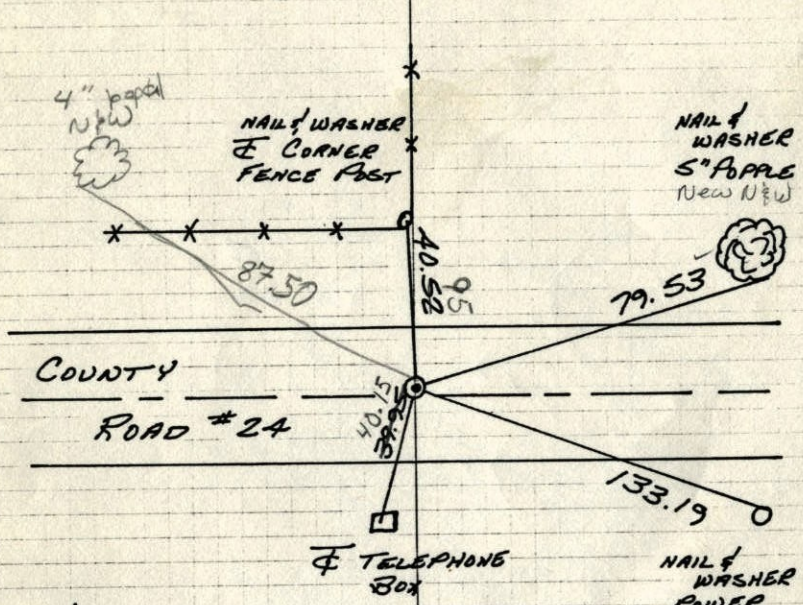 4" popal
N&W
NAIL & WASHER
℄ CORNER
FENCE POST
NAIL &
WASHER
5" POPPLE
New N&W
87.50
40.52
95
79.53
COUNTY
ROAD #24
40.15
39.95
133.19
℄ TELEPHONE
BOX
NAIL &
WASHER
POWER